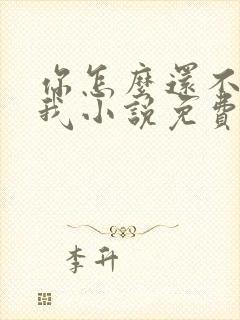 你怎麼還不
我小說免費
李升